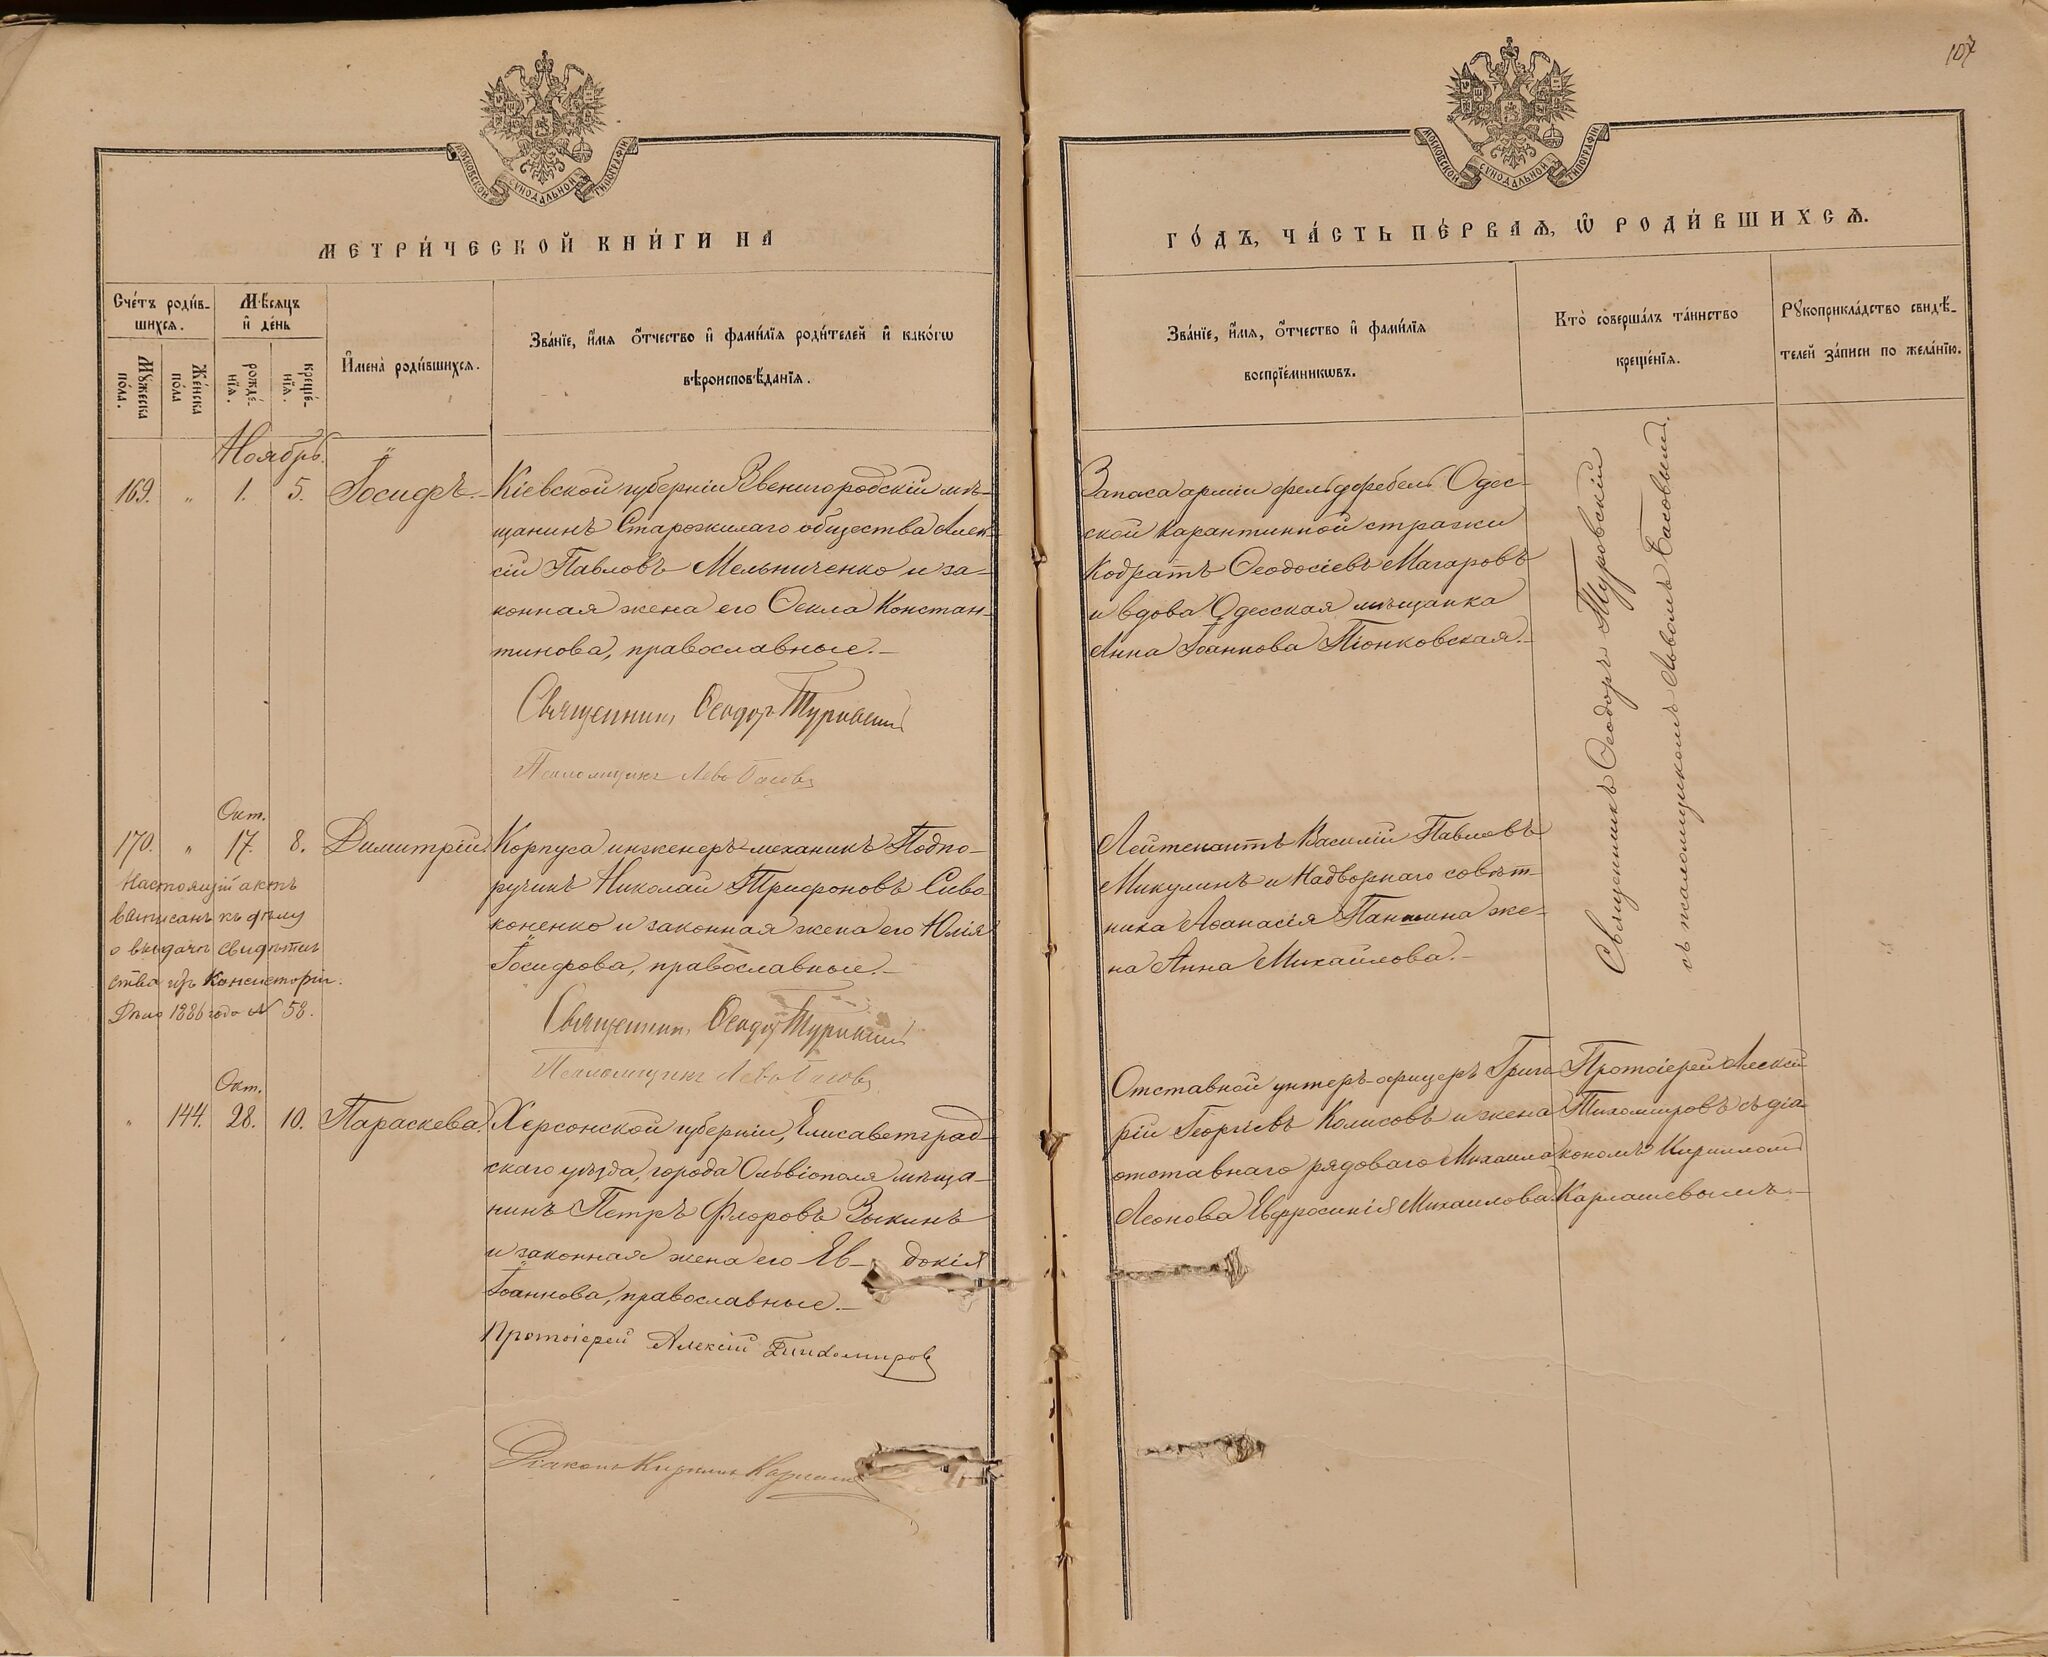 107
МОСКОВСКОЙ СѴНОДАЛЬНОЙ ТИПОГРАФІИ
МОСКОВСКОЙ СѴНОДАЛЬНОЙ ТИПОГРАФІИ
МЕТРИ́ЧЕСКОЙ КНИ́ГИ НА
ГО́ДЪ, ЧА́СТЬ ПЕ́РВАѦ, Ѡ҆ РОДИ́ВШИХСѦ.
Сче́тъ роди́в-
шихсѧ.
Мѣ́сѧцъ
и҆ де́нь
Мꙋ́жеска
по́ла.
Же́нска
по́ла
рожде́-
нїѧ.
креще́-
нїѧ.
И҆мена̀ роди́вшихсѧ.
Зва́нїе, и҆́мѧ ѻ҆́тчество и҆ фами́лїѧ роди́телей и҆ како́гѡ
вѣроисповѣ́данїѧ.
Зва́нїе, и҆́мѧ, ѻ҆́тчество и҆ фами́лїѧ
воспрїе́мникѡвъ.
Кто̀ соверша́лъ та́инство
креще́нїѧ.
Рꙋкоприкла́дство свидѣ́-
телей за́писи по жела́нїю.
Ноябрь.
169. „ 1. 5. Іосифъ.-
Кіевской губерніи Звенигородскій мѣ-
щанинъ Старожилаго общества Алек-
сій Павловъ Мельниченко и за-
конная жена его Ѳекла Констан-
тинова, православные.-
Священникъ Ѳеодоръ Туровскій
Псаломщикъ Левъ Басовъ
Запаса арміи фельдфебель Одес-
ской карантинной стражи
Кодратъ Ѳеодосіевъ Магаровъ
и вдова Одесская мѣщанка
Анна Іоаннова Піонковская.-
Священникъ Ѳеодоръ Туровскій
съ псаломщикомъ Львомъ Басовымъ.
Окт.
170. „ 17. 8. Димитрій.
Настоящій актъ
выписанъ къ дѣлу
о выдачѣ свидѣтель
ства изъ Консисторіи.
Дѣло 1886 года № 58.
Корпуса инженеръ-механикъ Подпо-
ручикъ Николай Трифоновъ Сиво-
коненко и законная жена его Юлія
Іосифова, православные.-
Священникъ Ѳеодоръ Туровскій
Псаломщикъ Левъ Басовъ
Лейтенантъ Василій Павловъ
Микулинъ и Надворнаго совѣт-
ника Аѳанасія Паншина же-
на Анна Михайлова.-
Окт.
„ 144. 28. 10. Параскева.
Херсонской губерніи, Елисаветград-
скаго уѣзда, города Ольвіополя мѣща-
нинъ Петръ Флоровъ Зыкинъ
и законная жена его Ев- докія
Іоаннова, православные.-
Протоіерей Алексій Тихомировъ
Діаконъ Кириллъ
Отставной унтеръ-офицеръ Григо-
рій Георгіевъ Колисовъ и жена
отставнаго рядоваго Михаила
Леонова Евфросинія Михаилова.
Протоіерей Алексій
Тихомировъ съ діа-
кономъ Кирилломъ
Карлашевымъ.-